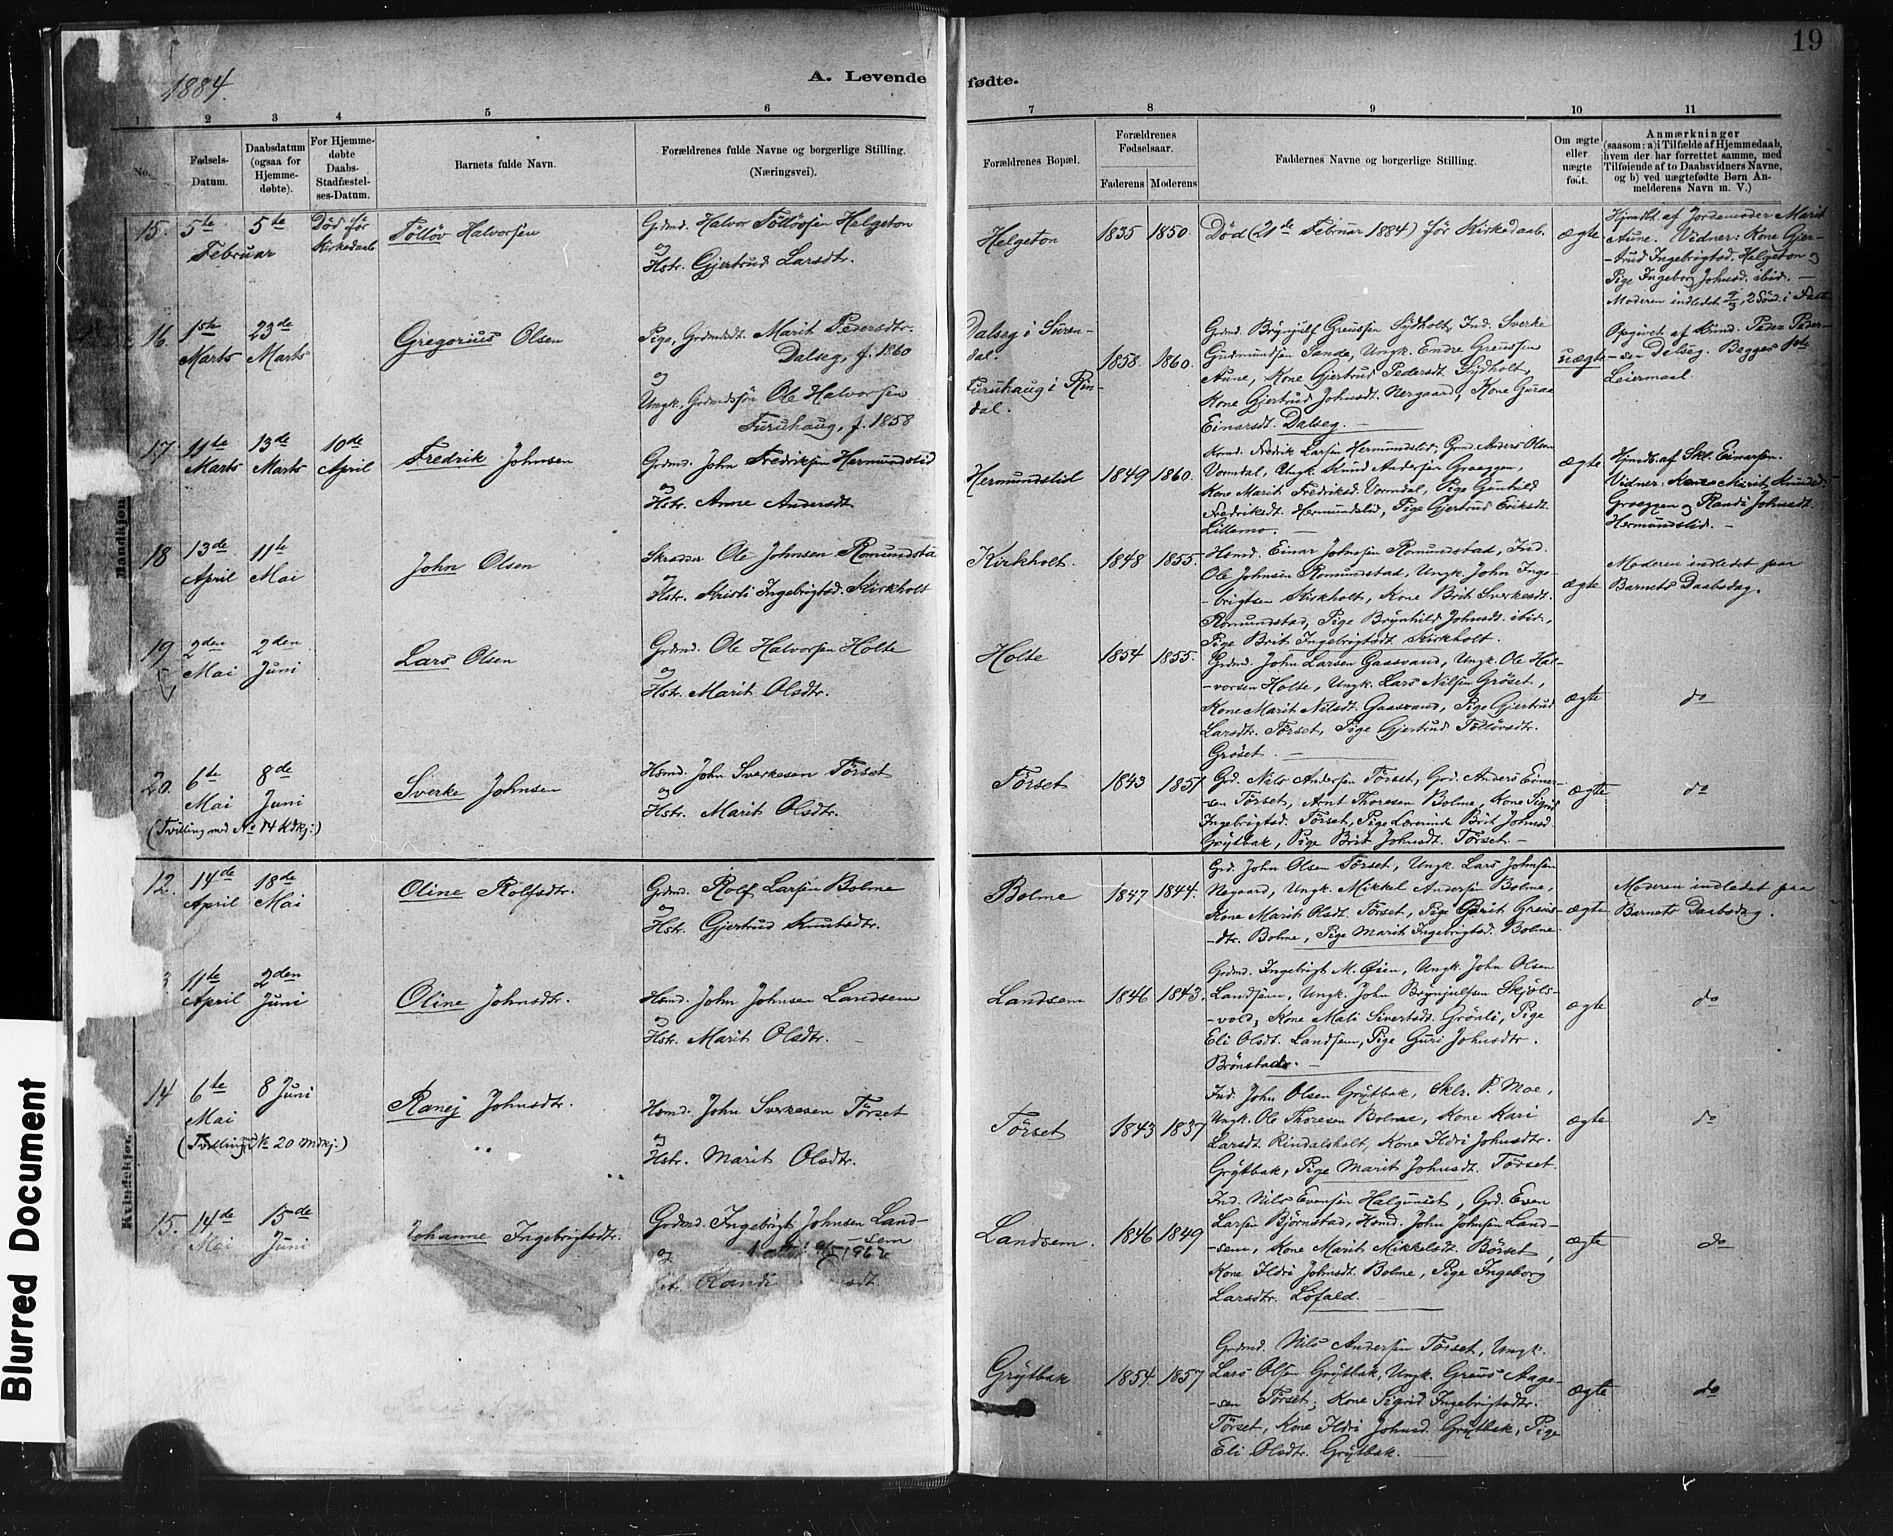 19
1884.
A. Levende fødte.
1 2 3 4 5 6 7 8 9 10 11
No.
Fødsels-Datum.
Daabsdatum (ogsaa for Hjemme-døbte).
For Hjemme-døbte Daabs-Stadfæstel-ses-Datum.
Barnets fulde Navn.
Forældrenes fulde Navne og borgerlige Stilling. (Næringsvei).
Forældrenes Bopæl.
Forældrenes Fødselsaar.
Faderens Moderens
Faddernes Navne og borgerlige Stilling.
Om ægte eller uægte født.
Anmærkninger
(saasom: a) i Tilfælde af Hjemmedaab,
hvem der har forrettet samme, med
Tilføiende af to Daabsvidners Navne,
og b) ved uægtefødte Børn An-
melderens Navn m. V.)
Mandkjøn
15. 5te Februar 5te Død før Kirkedaab
Tölløv Halvorsen
Grdmd. Halvor Tölløvsen Helgeton
og
Hstr. Gjertrud Larsdtr.
Helgeton 1835 1850
Død (21de Februar 1884) før Kirkedaab.
ægte
Hjmdbt. af Jordemoder Marit
Aune. Vidner: Kone Gjer-
-trud Ingebrigtsd. Helgeton og
Pige Ingeborg Johnsd. ibid. —
Moderen indledet
16. 1ste Marts 23de Marts
Gregorius Olsen
Pige, Grdmdsdt. Marit Pedersdtr.
Dalseg, f. 1860
og
Ungk., Grdmdssön Ole Halvorsen
Furuhaug, f. 1858
Dalseg i Suren-
dal.
Furuhaug i Rin-
dal.
1858. 1860.
Grdmd. Brynjulf Greussen Sydholt, Ind. Sverke
Gudmundsen Sande, Ungk. Endre Greussen
Aune, Kone Gjertrud Pedersdt. Sydholt,
Kone Gjertrud Johnsdt. Nergaard, Kone Guraa
Einarsdt. Dalseg. —
uægte
Opgivet af Peder Peder-
-sen Dalseg. Begges 1ste
Leiermaal.
17 11te Marts 13de Marts 10de April
Fredrik Johnsen
Grdmd. John Fredriksen Hermundslid
og
Hstr. Anne Andersdt.
Hermundslid 1849 1860.
Fredrik Larsen Hermundslid, Grd. Anders Olsen
Vormdal, Ungk. Knud Andersen Græggen,
Kone Marit Fredriksd. Vormdal, Pige Gunhild
Fredriksdt. Hermundslid, Pige Gjertrud Eriksdt.
Lillemo —
ægte
Hjmdb. af Skl. Einarsen.
Vidner: Kone Marit Knudsd.
Græggen og Randi Johnsdt.
Hermundslid. —
18 13de April 11te Mai
John Olsen
Skrædder Ole Johnsen Romundsta
og
Hstr. Kristi Ingebrigtsd. Kirkholt
Kirkholt. 1848 1855.
Hsmd. Einar Johnsen Romundstad, Ind.
Ole Johnsen Romundstad, Ungk. John Inge-
-brigtsen Kirkholt, Kone Brit Sverkesdt.
Romundstad, Pige Brynhild Johnsdt. ibid.,
Pige Brit Ingebrigtsdt. Kirkholt.
ægte
Moderen indledet paa
Barnets Daabsdag.
19 2den Mai 2den Juni
Lars Olsen
Grdmd. Ole Halvorsen Holte
og
Hstr. Marit Olsdtr.
Holte 1854 1855.
Grdmd. John Larsen Gaasvand, Ungk. Ole Hal-
-vorsen Holte, Ungk. Lars Nilsen Gröset,
Kone Marit Nilsdt. Gaasvand, Pige Gjertrud
Larsdtr. Törset, Pige Gjertrud Tölløvsdtr.
Gröset. —
ægte
do
20. 6te Mai 8de Juni
(Tvilling med No 14 Kdkj:)
Sverke Johnsen
Hsmd. John Sverkesen Törset
og
Hstr. Marit Olsdtr.
Törset 1843 1851
Grd. Nils Andersen Törset, Grd. Anders Einar-
-sen Törset, Arnt Thoresen Bolme, Kone Sigrid
Ingebrigtsd. Törset, Pige Lærerinde Brit Johnsd.
Grytbak, Pige Brit Johnsdt. Törset. —
ægte
do
Kvindekjøn.
12. 14de April 18de Mai
Oline Rolfsdtr.
Grdmd. Rolf Larsen Bolme
og
Hstr. Gjertrud Knutsdtr.
Bolme 1847 1844.
Grd. John Olsen Törset, Ungk. Lars Johnsen
Negaard, Ungk. Mikkel Andersen Bolme,
Kone Marit Olsdt. Törset, Pige Gurit Greus-
-dtr. Bolme, Pige Marit Ingebrigtsd. Bolme.
ægte
Moderen indledet paa
Barnets Daabsdag.
3 11te April 2den Juni
Oline Johnsdtr.
Hsmd. John Johnsen Landsem
og
Hstr. Marit Olsdtr.
Landsem 1846 1843.
Grdmd. Ingebrigt M. Øien, Ungk. John Olsen
Landsem, Ungk. John Brynjulfsen Skjöls-
-vold, Kone Mali Sivertsdt. Grönli, Pige
Eli Olsdt. Landsem, Pige Guri Johnsdtr.
Brönstad. —
ægte
do
14 6te Mai 8 Juni
(Tvilling med No 20 Mdkj:)
Ranej Johnsdtr.
Hsmd. John Sverkesen Törset
og
Hstr. Marit Olsdtr.
Törset 1843 1837
Ind. John Olsen Grytbak, Sklr. P. Moe,
Ungk. Ole Thoresen Bolme, Kone Kari
Larsdt. Rindalsholt, Kone Ildri Johnsdtr.
Grytbak, Pige Marit Johnsdt. Törset.
ægte
do
15. 14de Mai 15de Juni
Johanne Ingebrigtsdtr.
Grdmd. Ingebrigt Johnsen Land-
-sem
og
Randi sdt.
Landsem. 1846 1849
Ind. Nils Evensen Halgunset, Grd. Even
Larsen Björnstad, Hsmd. John Johnsen Land-
-sem, Kone Marit Mikkelsdt. Börset,
Kone Ildri Johnsdt. Bolme, Pige Ingeborg
Larsdtr. Löfald.
ægte
do
Grytbak 1854 1857
Grdmd. Nils Andersen Törset, Ungk.
Lars Olsen Grytbak, Ungk. Greus Aage-
-sen Törset, Kone Sigrid Ingebrigtsdtr.
Törset, Kone Ildri Johnsd. Grytbak, Pige
Eli Olsdtr. Grytbak. —
ægte
do
Blurred Document